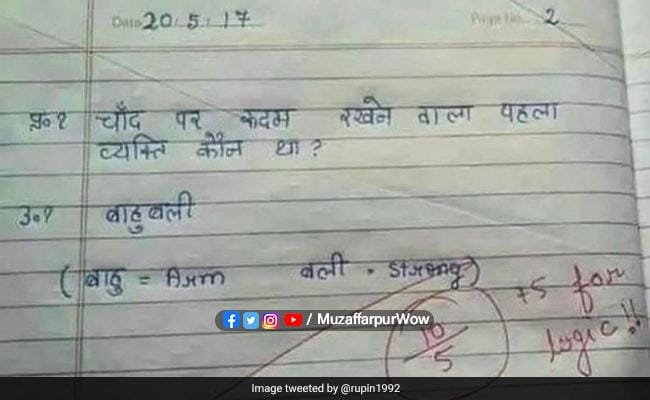 Date 20.5.17 Page No. 2
प्र०१ चाँद पर कदम रखने वाला पहला
व्यक्ति कौन था ?
उ०१ बाहुबली
( बाहु = Arm बली = Strong)
+5 for
logic!!
10/5
/ MuzaffarpurWow
Image tweeted by @rupin1992